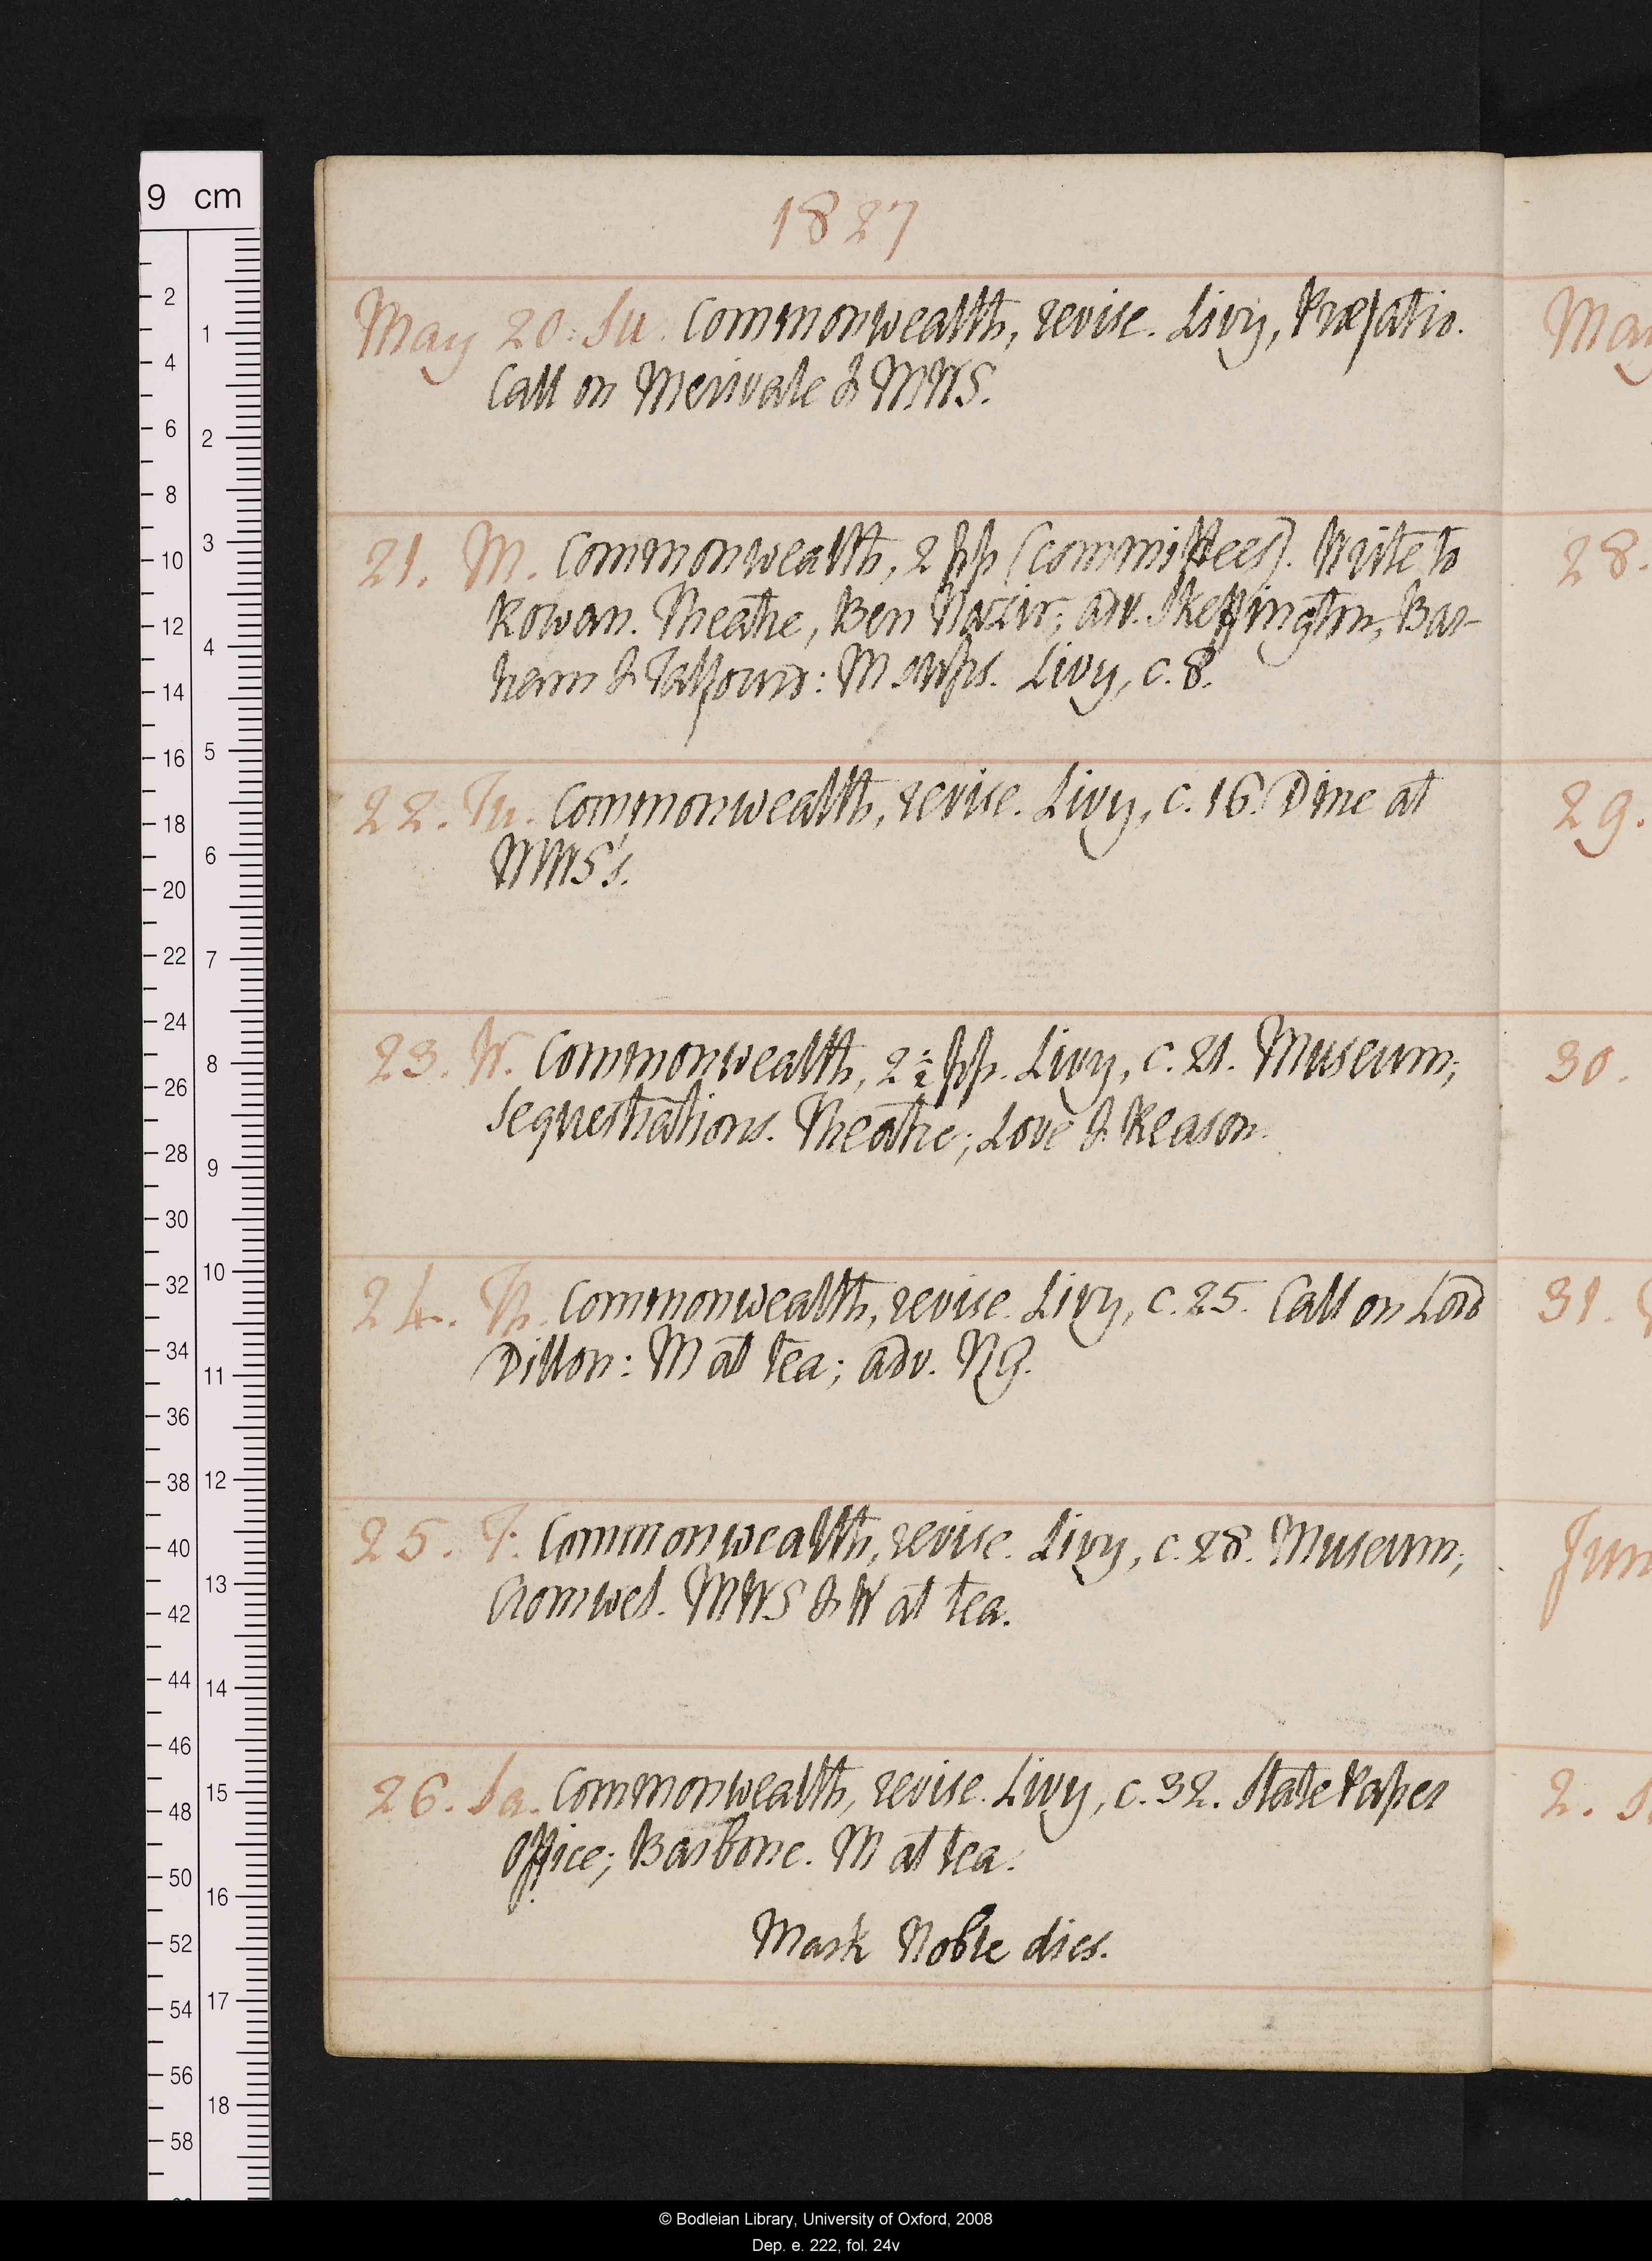 1827
May 20. Su. Commonwealth, revise. Livy, Præfatio.
Call on Merivale & MWS.
21. M. Commonwealth, 2 pp (committees). Write to
Rowan. Theatre, Ben Nazir; adv. Skeffington, Bar-
ham & Talfourd: M sups. Livy, c. 8.
22. Tu. Commonwealth, revise. Livy, c. 16. Dine at
MWS's.
23. W. Commonwealth, 2 1/2 pp. Livy, c. 21. Museum;
Sequestrations. Theatre; Love & Reason.
24. Th. Commonwealth, revise. Livy, c. 25. Call on Lord
Dillon: M at tea; adv. NG.
25. F. Commonwealth, revise. Livy, c. 28. Museum;
Cromwel. MWS & W at tea.
26. Sa. Commonwealth, revise. Livy, c. 32. State Paper
Office; Barbone. M at tea.
Mark Noble dies.
May
28.
29.
30.
31.
Jun
2.
9 cm
2
4
6
8
10
12
14
16
18
20
22
24
26
28
30
32
34
36
38
40
42
44
46
48
50
52
54
56
58
1
2
3
4
5
6
7
8
9
10
11
12
13
14
15
16
17
18
© Bodleian Library, University of Oxford, 2008
Dep. e. 222, fol. 24v